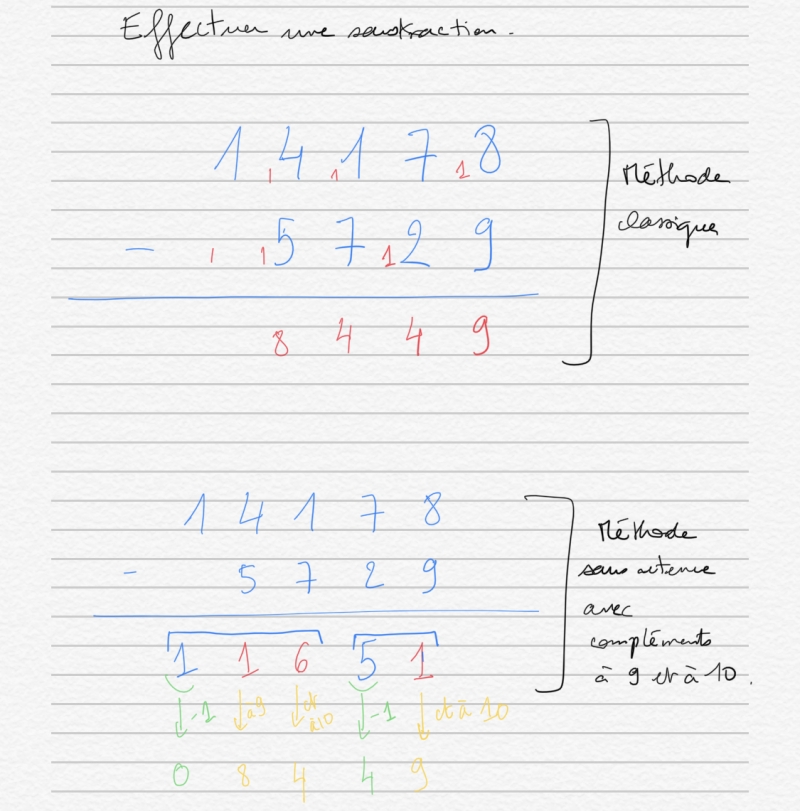 Effectuer une soustraction.
1 1 4 1 1 7 1 8
- 1 1 5 7 1 2 9
8 4 4 9
Méthode
classique
1 4 1 7 8
- 5 7 2 9
1 1 6 5 1
-1 à 9 et à 10 -1 et à 10
0 8 4 4 9
Méthode
sans
avec
compléments
à 9 et à 10.